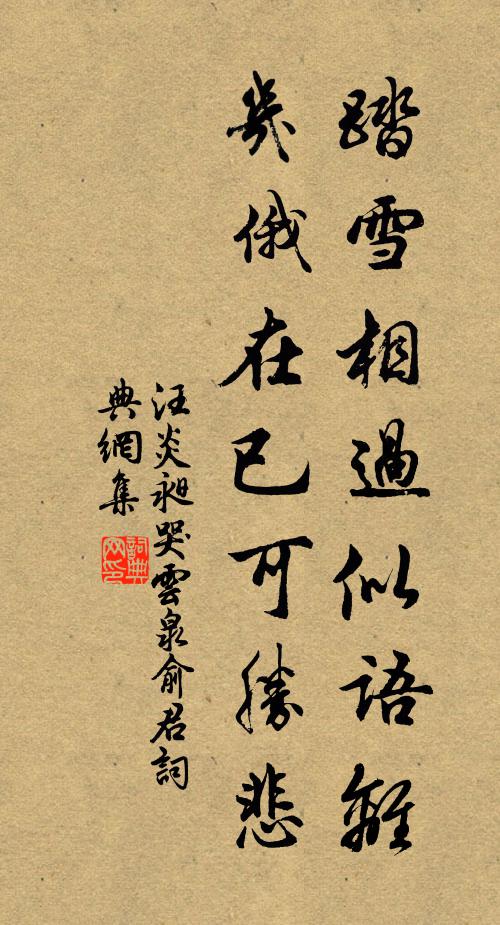 踏雪相過似語離
幾俄在已可勝悲
汪炎昶哭雲泉俞君詞
典網集
詞典
网印